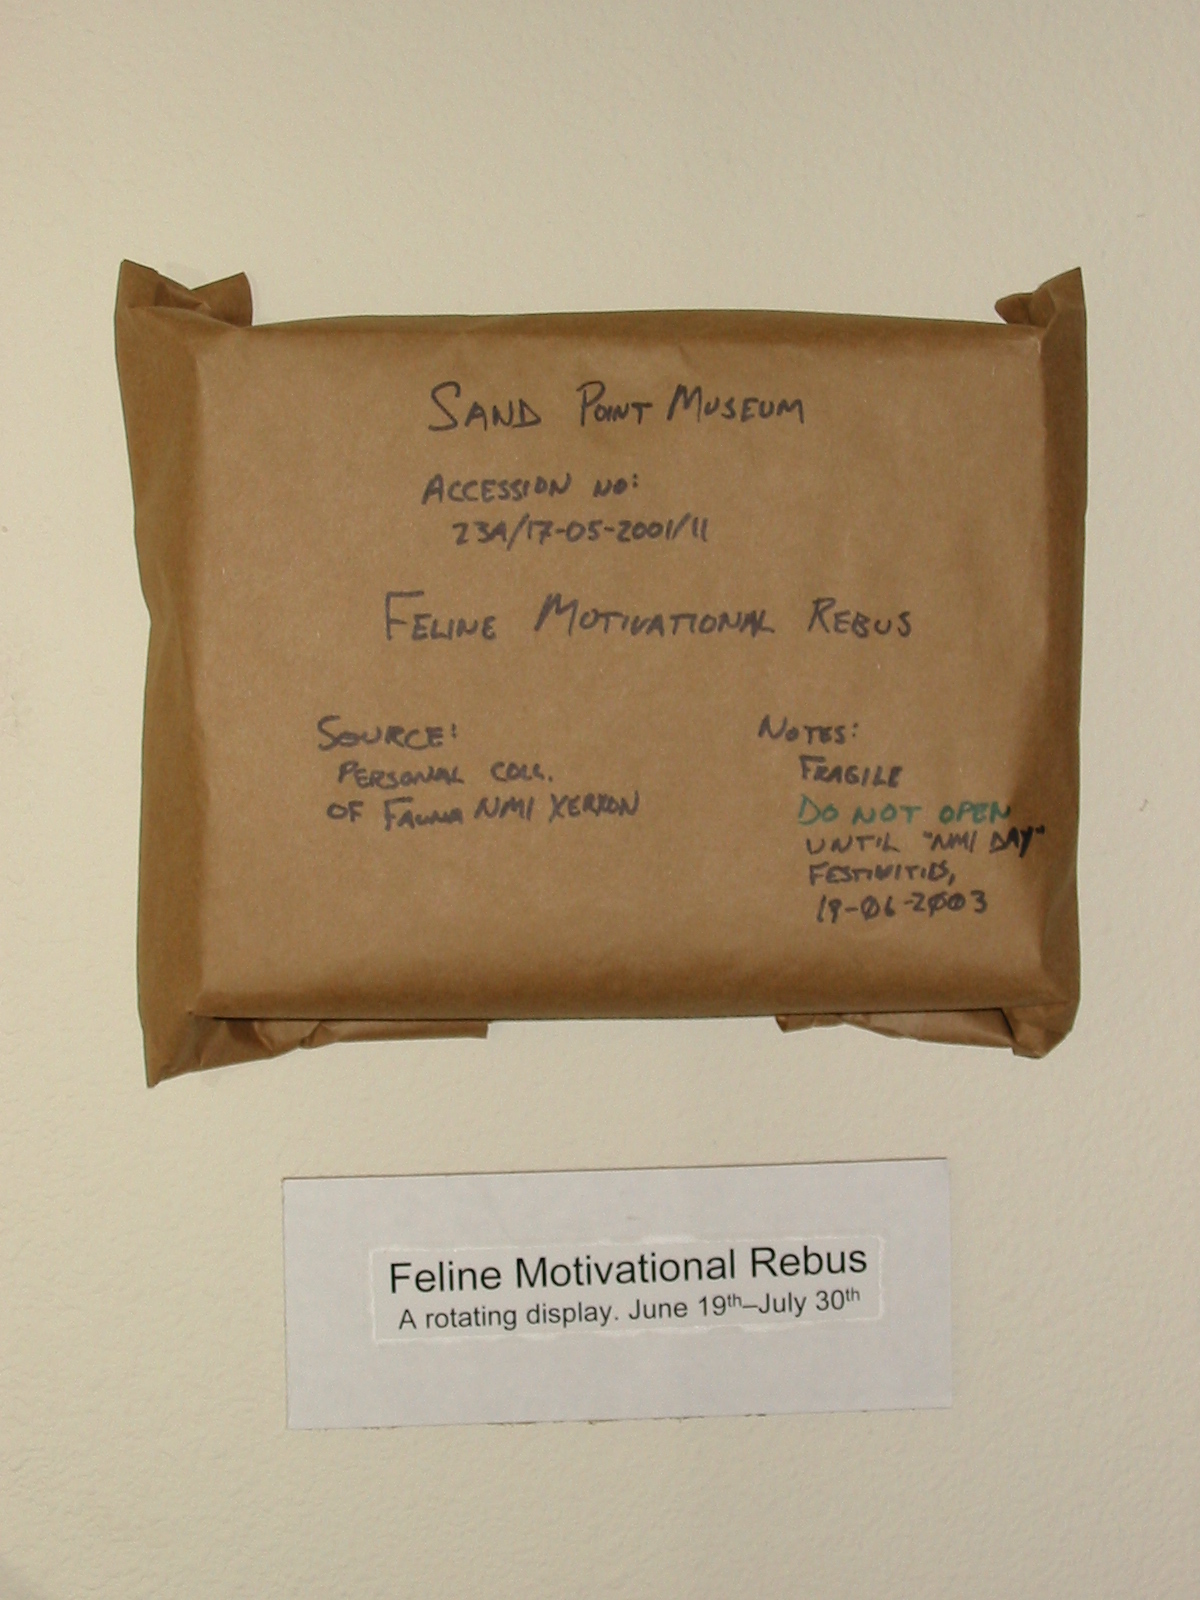 SAND POINT MUSEUM
ACCESSION NO:
23A/17-05-2001/11
FELINE MOTIVATIONAL REBUS
SOURCE:
PERSONAL COLL.
OF FAUNA NMI XERXON
NOTES:
FRAGILE
DO NOT OPEN
UNTIL "NMI DAY"
FESTIVITIES,
19-06-2003
Feline Motivational Rebus
A rotating display. June 19th–July 30th